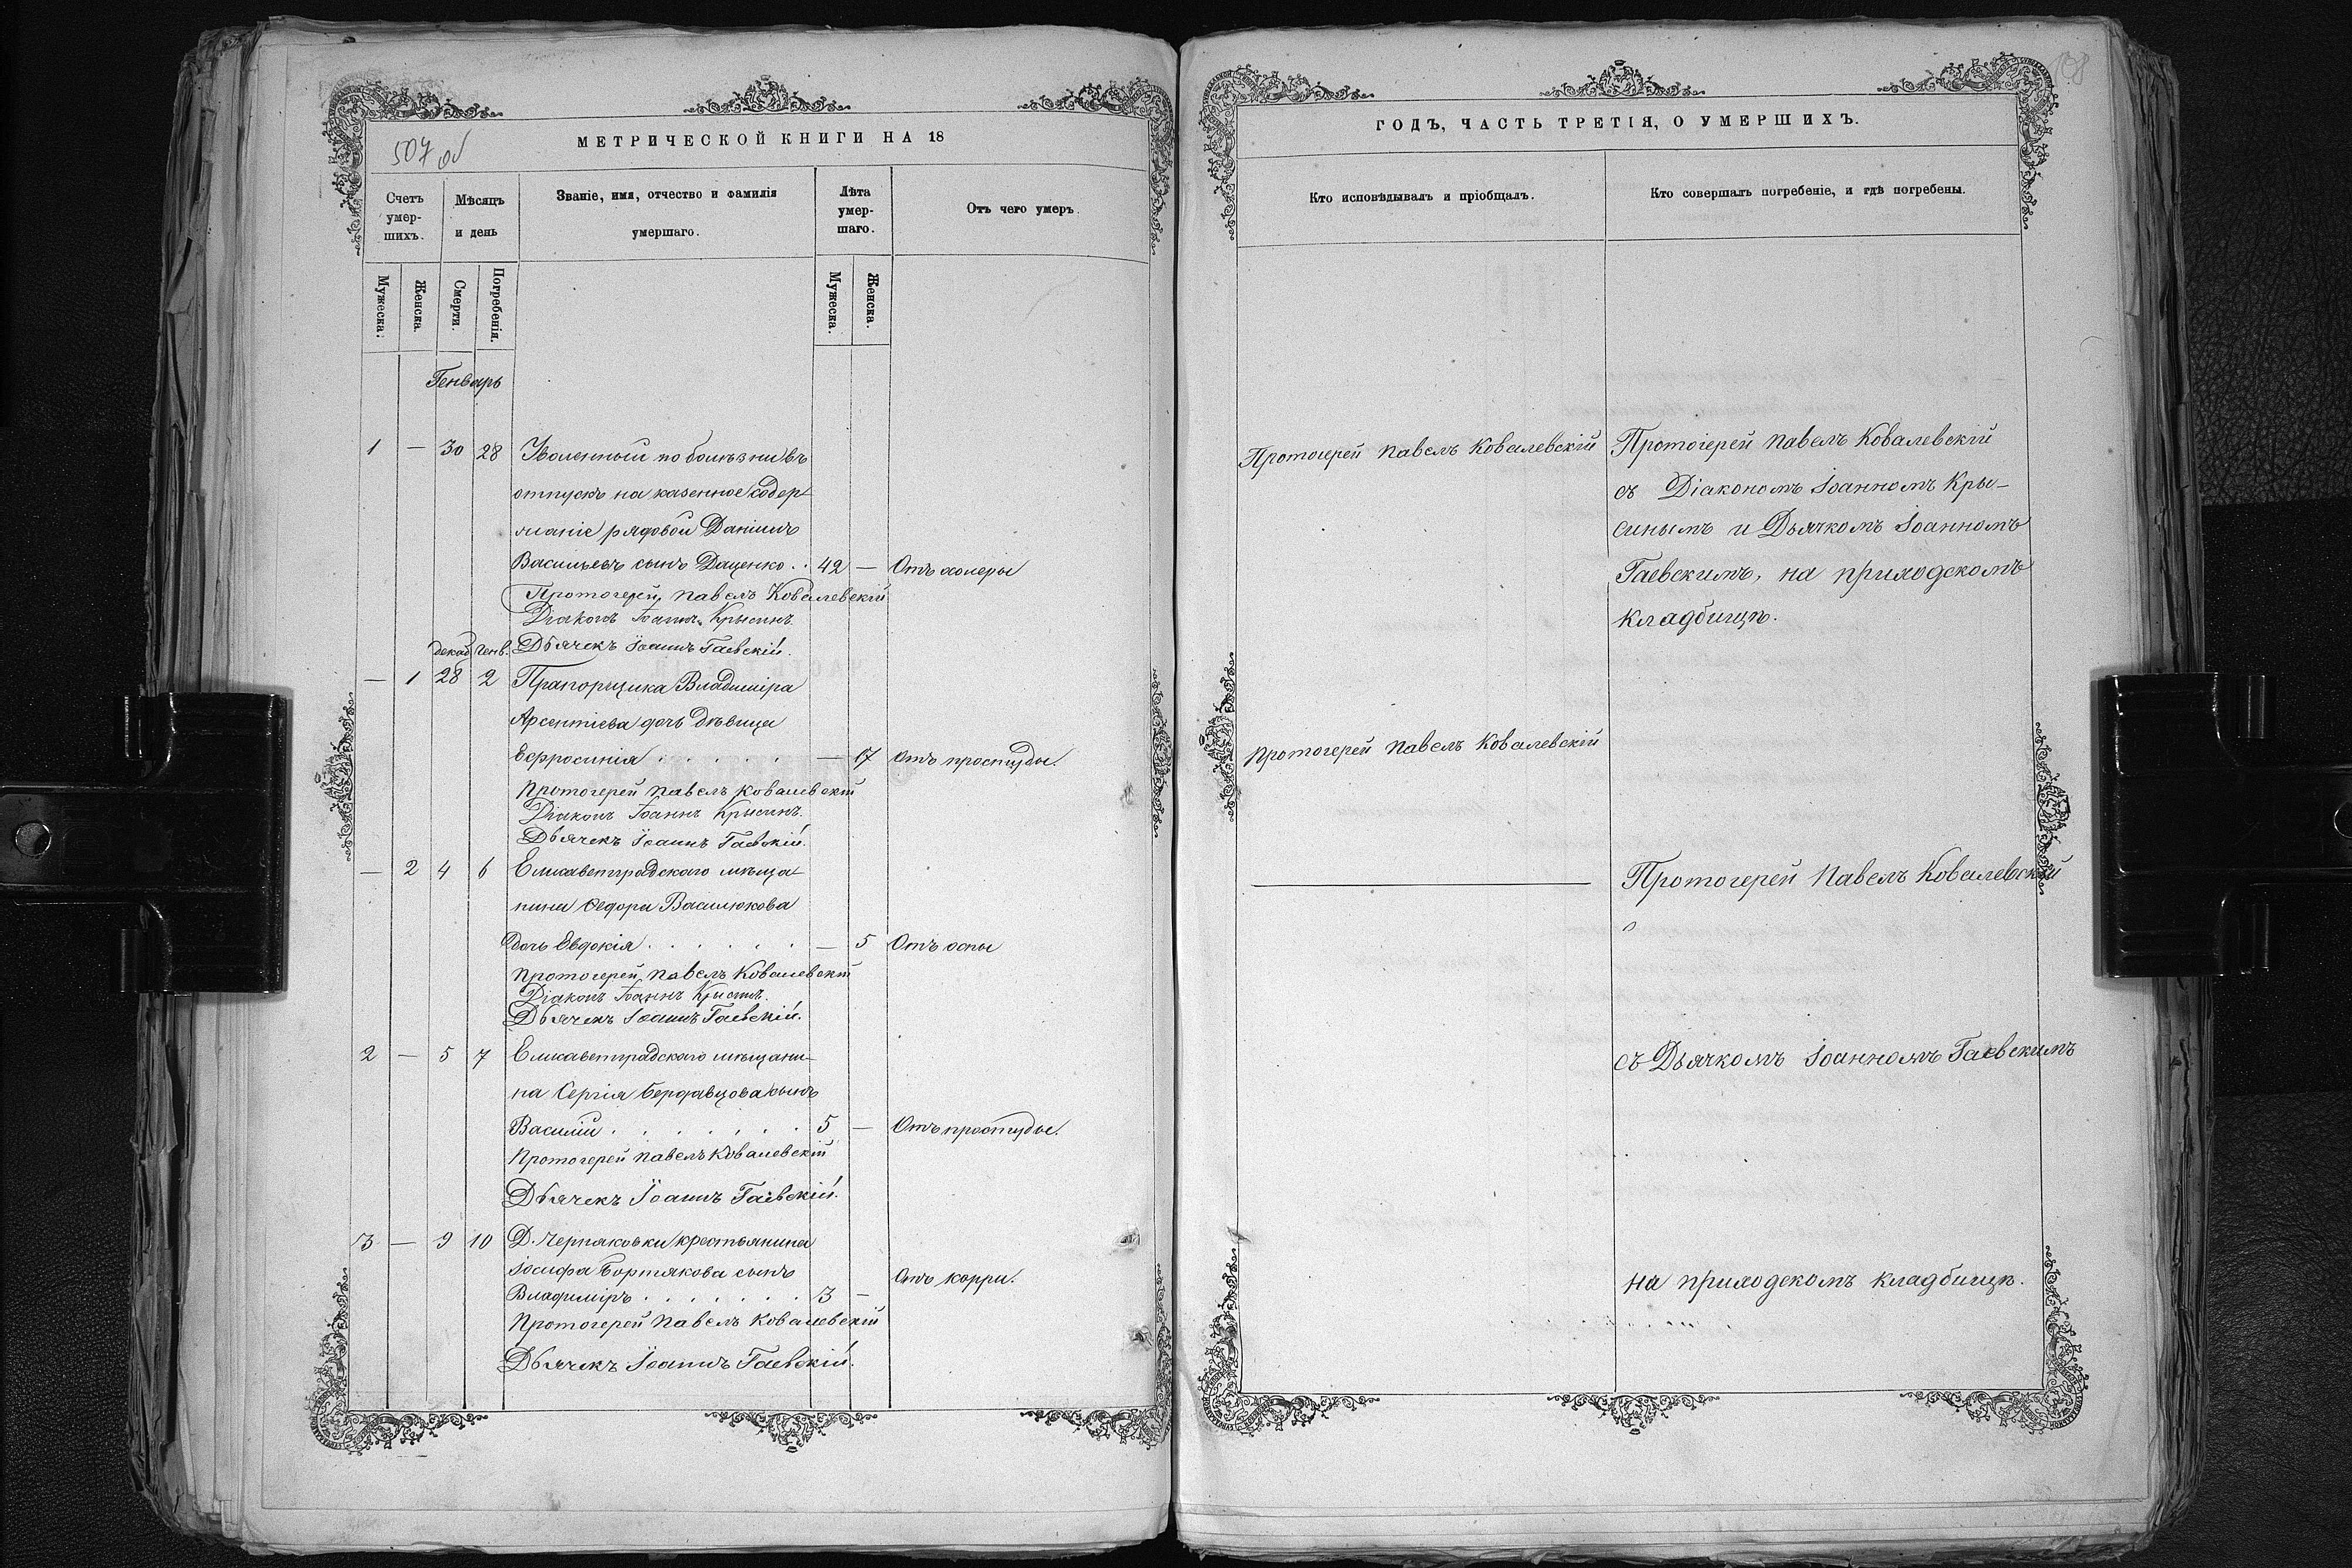 507 об
МЕТРИЧЕСКОЙ КНИГИ НА 18
Счетъ умер-шихъ.
Мѣсяцъ и день
Званіе, имя, отчество и фамилія умершаго.
Лѣта умер-шаго.
Отъ чего умеръ.
Мужеска.
Женска.
Смерти.
Погребенія.
Мужеска.
Женска.
Генварь
1 — 30 28 Уволенный по болѣзни въ
отпускъ на казенное содер
жаніе рядовой Даніилъ
Васильевъ сынъ Даценко . . 42 — Отъ холеры
Протоіерей Павелъ Ковалевскій
Діаконъ Іоаннъ Крысинъ.
декаб. генв. Дьячекъ Іоаннъ Гаевскій.
— 1 28 2 Прапорщика Владиміра
Арсентіева дочь дѣвица
Евфросинія . . . . . . — 17 Отъ простуды.
Протоіерей Павелъ Ковалевскій
Діаконъ Іоаннъ Крысинъ.
Дьячекъ Іоаннъ Гаевскій.
— 2 4 6 Елисаветградскаго мѣща
нина Ѳедора Василюкова
дочь Евдокія . . . . . . — 5 Отъ оспы
Протоіерей Павелъ Ковалевскій
Діаконъ Іоаннъ Крысинъ.
Дьячекъ Іоаннъ Гаевскій.
2 — 5 7 Елисаветградскаго мѣщани-
на Сергія сынъ
Василій . . . . . . . 5 — Отъ простуды.
Протоіерей Павелъ Ковалевскій
Дьячекъ Іоаннъ Гаевскій.
3 — 9 10 Д. Черняховки крестьянина
Іосифа Бортякова сынъ
Отъ корри.
Владиміръ . . . . . . . 3 —
Протоіерей Павелъ Ковалевскій
Дьячекъ Іоаннъ Гаевскій.
ГОДЪ, ЧАСТЬ ТРЕТІЯ, О УМЕРШИХЪ.
Кто исповѣдывалъ и пріобщалъ.
Кто совершалъ погребеніе, и гдѣ погребены.
Протоіерей Павелъ Ковалевскій
Протоіерей Павелъ Ковалевскій
съ Діакономъ Іоанномъ Кры-
синымъ и Дьячкомъ Іоанномъ
Гаевскимъ, на приходскомъ
кладбищѣ.
Протоіерей Павелъ Ковалевскій
Протоіерей Павелъ Ковалевскій
съ Дьячкомъ Іоанномъ Гаевскимъ
на приходскомъ кладбищѣ.